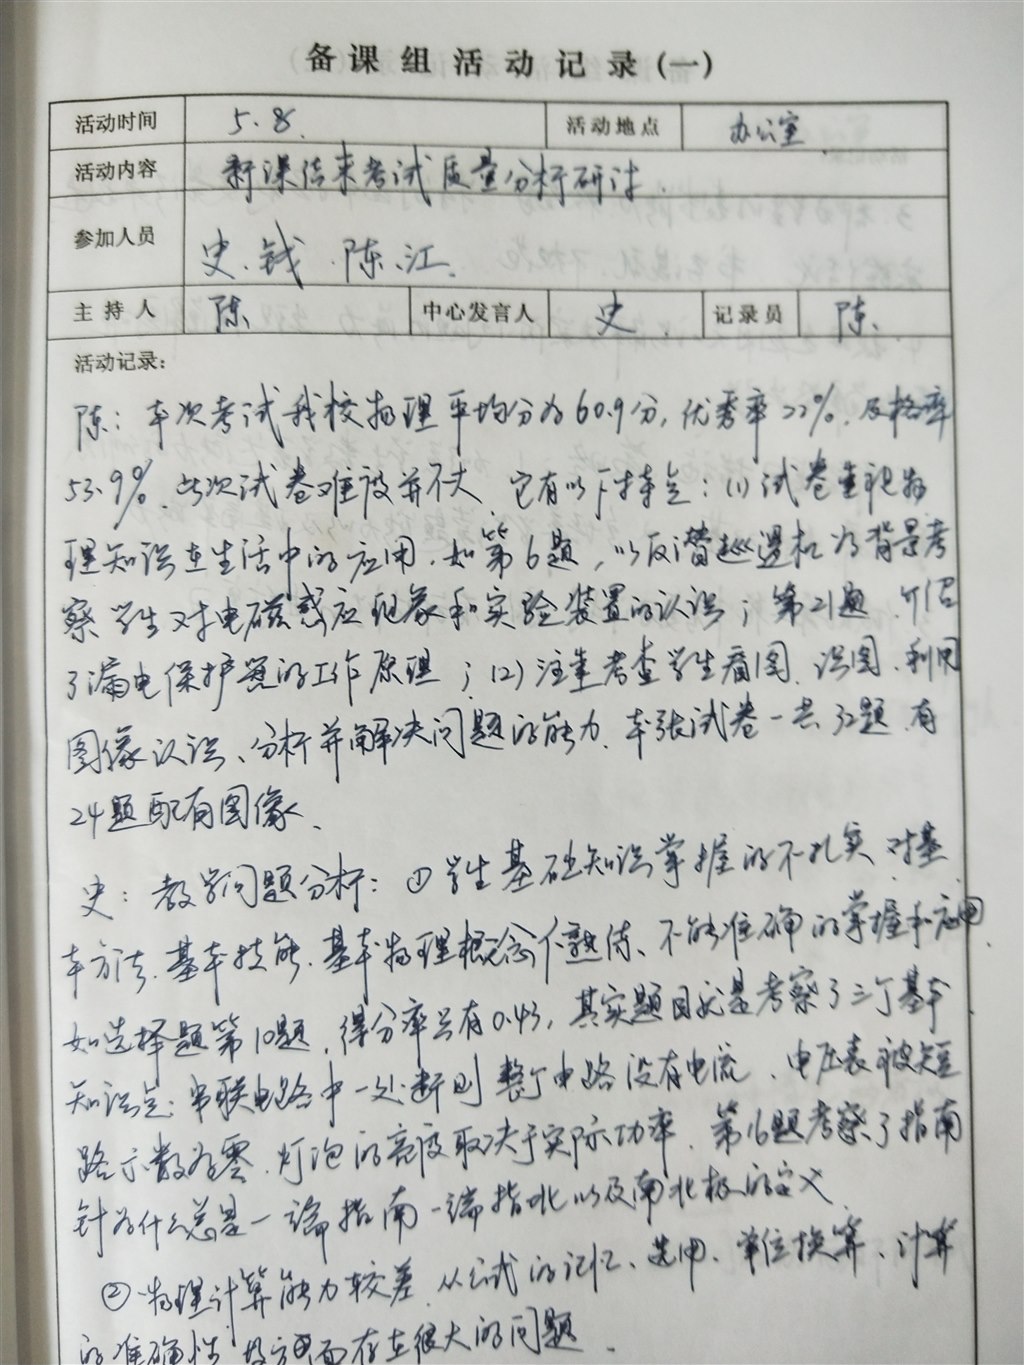 备课组活动记录(一)
活动时间 5.8. 活动地点 办公室
活动内容 新课结束考试质量分析研讨
参加人员 史、钱、陈、江
主持人 陈 中心发言人 史 记录员 陈
活动记录:
陈: 本次考试我校物理平均分为60.9分, 优秀率22%、及格率
53.9%、此次试卷难度并不大、它有以下特点: (1) 试卷重视物
理知识在生活中的应用、如第6题, 以反潜巡逻机为背景考
察学生对电磁感应现象和实验装置的认识; 第21题、介绍
了漏电保护器的工作原理; (2) 注重考查学生看图、识图、利用
图像认识、分析并解决问题的能力、本张试卷一共32题、有
24题配有图像、
史: 教学问题分析: ① 学生基础知识掌握的不扎实、对基
本方法、基本技能、基本物理概念不熟悉、不能准确的掌握和应用、
如选择题第10题、得分率只有0.43, 其实题目就是考察了三个基本
知识点: 串联电路中一处断则整个电路没有电流、电压表被短
路示数为零、灯泡的亮度取决于实际功率、第16题考察了指南
针为什么总是一端指南一端指北以及南北极的定义
② 物理计算能力较差、从公式的记忆、选用、单位换算、计算
的准确性 方面存在很大的问题、